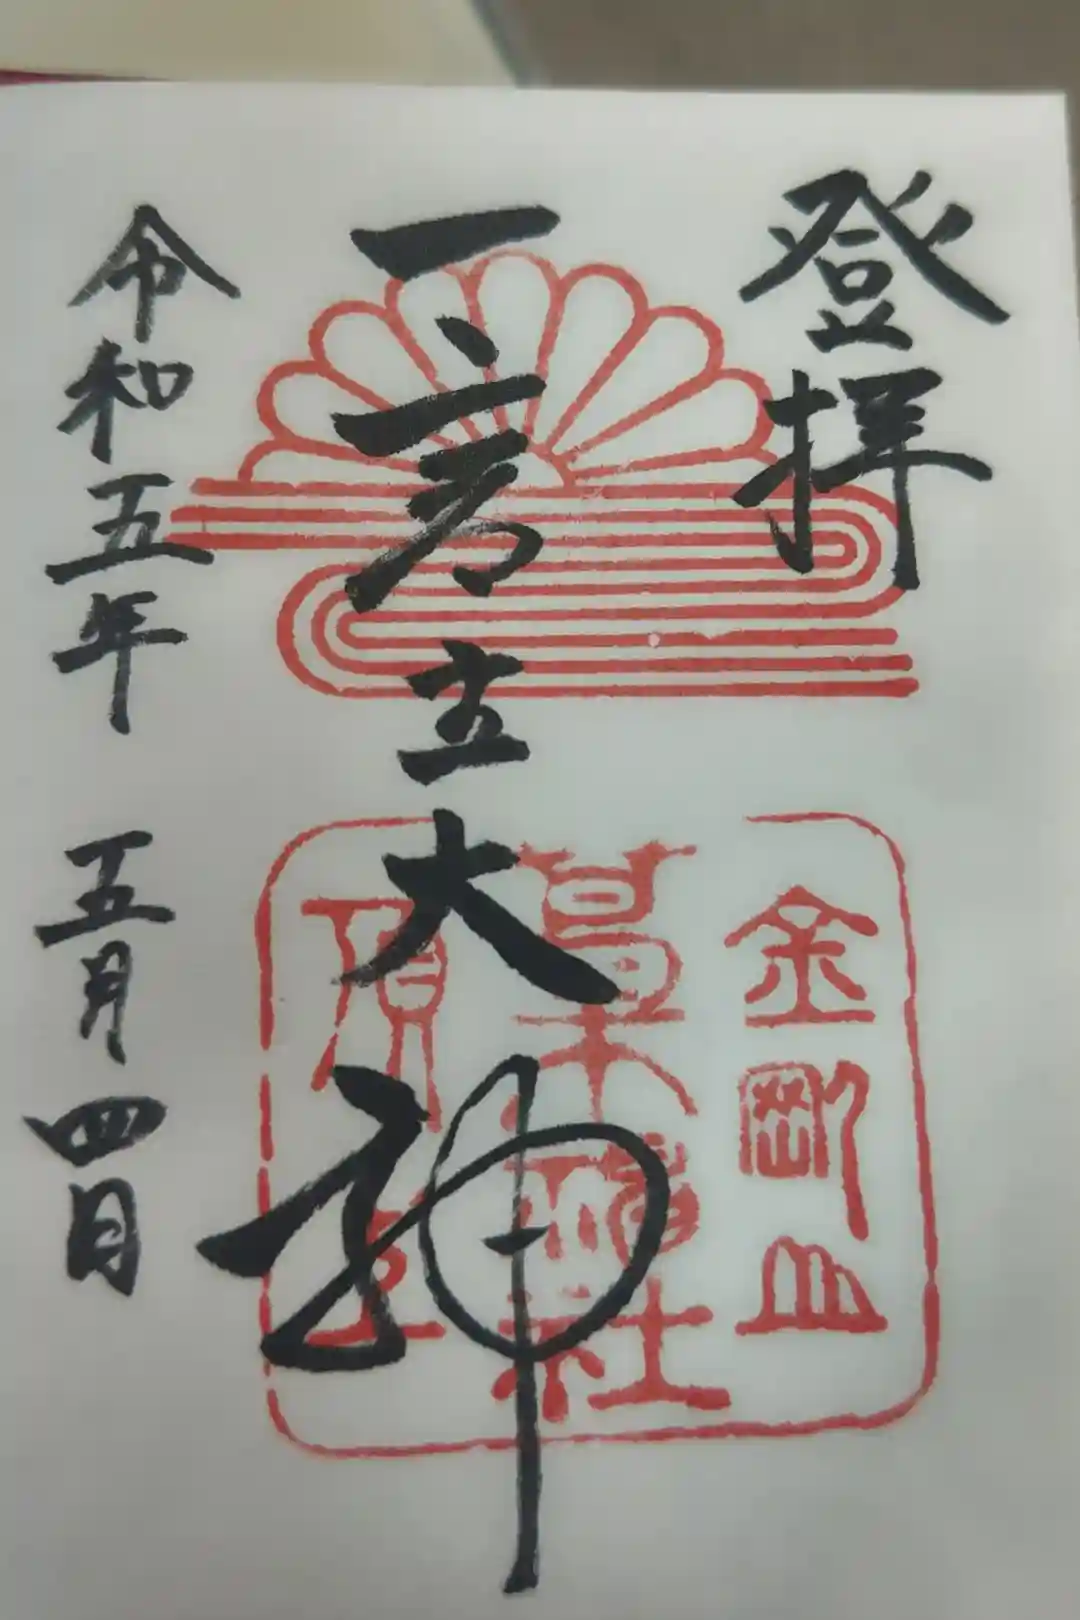 登拝
一言主大神
令和五年 五月四日
金剛山
葛木神社
頂上